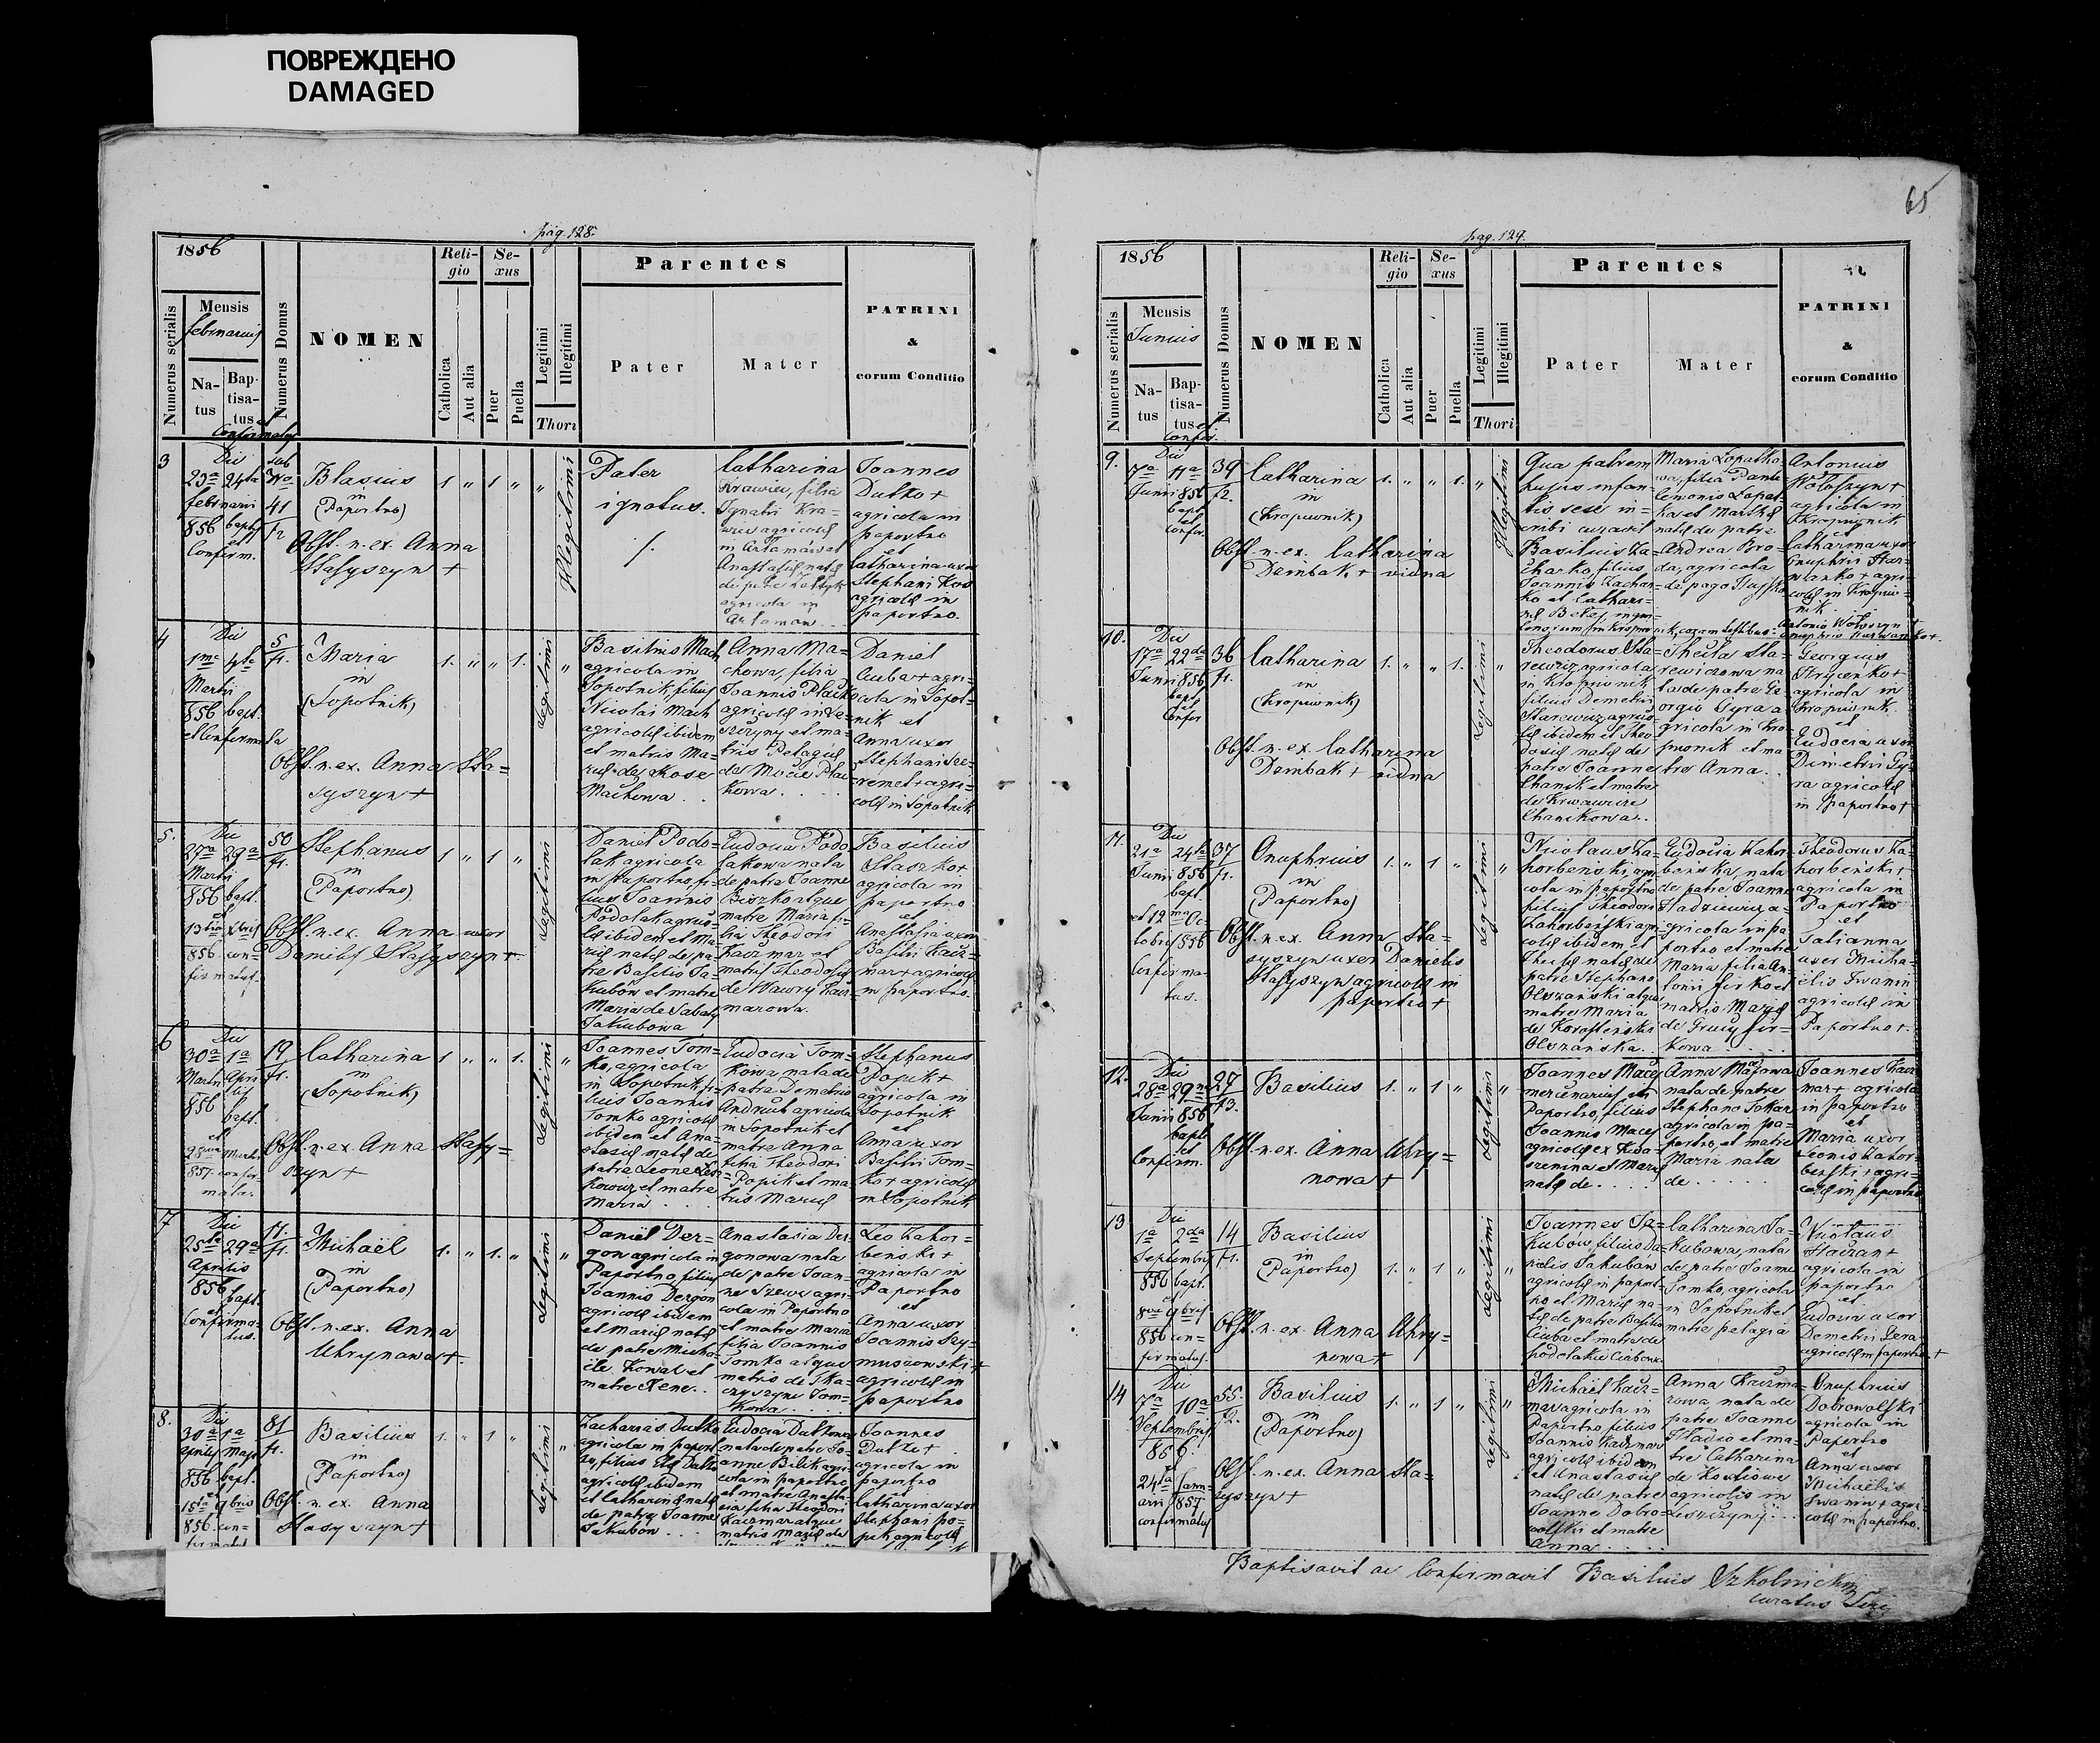 ПОВРЕЖДЕНО
DAMAGED
65
pag. 128.
1856
Numerus serialis
Mensis
februarius
Na-
tus
Bap-
tisa-
tus et
Confirmatus
Numerus Domus
NOMEN
Reli-
gio
Catholica
Aut alia
Se-
xus
Puer
Puella
Legitimi
Illegitimi
Thori
Parentes
Pater
Mater
PATRINI
&
eorum Conditio
3
Die
23a 24ta
februarii
856 bapt.
et
Confirm.
sub
Nro
41
f2
Blasius
in
(Paportno)
Obst. n. ex. Anna
Stasyszyn +
1 " 1 " "
Illegitimi
Pater
ignotus.
Catharina
Krawiec, filia
Ignatii Kra-
wiec agricolæ
in Artamów et
Anastasiæ natæ
de patre
agricola in
Artamow
Joannes
Dutko +
agricola in
paportno
et
Catharina uxor
Stephani Kos
agricolæ in
paportno.
4
Die
1ma 4ta
Martii
856 bapt.
et Confirmata
5
f1.
Maria
in
(Sopotnik)
Obst. n. ex. Anna Sta-
syszyn +
1. " " 1.
Legitimi
"
Basilius Mach
agricola in
Sopotnik, filius
Nicolai Mach
agricolæ ibidem
et matris Ma-
riæ de Kose
Machowa . .
Anna Ma-
chowa, filia
Joannis Placko
agricolæ in Le-
szczyny et ma-
tris Pelagiæ
de Mocie Plac-
kowa . . . .
Daniel
Ciuba + agri-
cola in Sopot-
nik et
Anna uxor
Stephani Sze-
remet + agri-
colæ in Sopotnik
5.
Die
27a 29a
Martii
856 bapt.
et
13tia Xbris
856 con-
firmatus.
50
f1.
Stephanus
in
(Paportno)
Obst. n. ex. Anna uxor
Danielis Stasyszyn +
1 " 1 "
Legitimi
Daniel Podo-
lak agricola
in Paportno, fi-
lius Joannis
Podolak agrico-
læ ibidem et Ma-
riæ natæ de pa-
tre Basilio Ja-
kubów et matre
Maria de Sabaty
Jakubowa
Eudocia Podo-
lakowa nata
de patre Joanne
Biszko atque
matre Maria fi-
lia Theodori
Kaczmar et
matris Theodosiæ
de Wawry Kacz-
marowa.
Basilius
Staszko +
agricola in
paportno
et
Anastasia uxor
Basilii Kacz-
mar + agricolæ
in paportno.
6
Die
30a 1a
Martii Apri-
856 lis
bapt.
et
28va Martii
857 confir-
mata.
19
f1.
Catharina
in
(Sopotnik)
Obst. n. ex. Anna Stasy-
szyn +
1 " " 1.
Legitimi
"
Joannes Tom-
ko, agricola
in Sopotnik, fi-
lius Joannis
Tomko agricolæ
ibidem et Ana-
stasiæ natæ de
patre Leone Len-
kowicz et matre
Maria . . .
Eudocia Tom-
kowa nata de
patre Demetrio
Andruch agricola
in Sopotnik et
matre Anna
filia Theodori
Popik et ma-
tris Mariæ
Stephanus
Popik +
agricola in
Sopotnik
et
Anna uxor
Basilii Tom-
ko + agricolæ
in Sopotnik
7
Die
25ta 29a
Aprilis
856 bapt.
et
Confirma-
tus.
11
f1.
Michaël
in
(Paportno)
Obst. n. ex. Anna
Uhrynowa +.
1. " 1. "
Legitimi
"
Daniel Der-
gon agricola in
Paportno, filius
Joannis Dergon
agricolæ ibidem
et Mariæ natæ
de patre Micha-
ële Kowal et
matre Xene . .
Anastasia Der-
gonowa nata
de patre Joan-
ne Szewc agri-
cola in Paportno
et matre Maria
filia Joannis
Tomko atque
matris de Tka-
czyszyn Tom-
kowa . . . .
Leo Zahor-
beński +
agricola in
Paportno
et
Anna uxor
Joannis Szy-
manowski +
agricolæ in
paportno
8.
Die
30a 1a
Aprilis Maji
856 bapt.
et
15ta 9bris
856 con-
firmatus
81
f1.
Basilius
in
(Paportno)
Obst. n. ex. Anna
Stasyszyn +
1. " 1 "
Legitimi
"
Zacharias Dutko
agricola in paport-
no, filius Eliæ Dutko
agricolæ ibidem
et Catharinæ natæ
de patre Joanne
Jakubow . . .
Eudocia Dutkowa
nata de patre Jo-
anne Bilik agri-
cola in paportno
et matre Anasta-
sia filia Theodori
Kaczmar atque
matris Mariæ de
Joannes
Dutko +
agricola in
paportno
et
Catharina uxor
Stephani po-
pik agricolæ
pag. 129.
1856
Numerus serialis
Mensis
Junius
Na-
tus
Bap-
tisa-
tus et
Confir.
Numerus Domus
NOMEN
Reli-
gio
Catholica
Aut alia
Se-
xus
Puer
Puella
Legitimi
Illegitimi
Thori
Parentes
Pater
Mater
PATRINI
&
eorum Conditio
9.
Die
7a 11a
Junii 856
bapt.
et
Confir.
39
f2.
Catharina
in
(Kropiwnik)
Obst. n. ex. Catharina
Dembak + vidua
1. " " 1. "
Illegitimi
Qua patrem
hujus infan-
tis sese in-
scribi curavit
Basilius Za-
charko, filius
Joannis Zachar-
ko et Cathari-
næ Bełej
Maria Łopatko-
wa, filia Pante-
lemonis Łopat-
ka et Marthæ
natæ de patre
Andrea Bro-
da, agricola
de pago
coram testibus: Antonio Wołoszyn +
Antonius
Wołoszyn +
agricola in
Kropiwnik
et
Catharina uxor
Onuphrii Har-
wanko + agri-
colæ in Kropiw-
nik.
10.
Die
17a 22da
Junii 856
bapt.
et
Confir
36
f1.
Catharina
in
(Kropiwnik)
Obst. n. ex. Catharina
Dembak + vidua
1. " " 1.
Legitimi
"
Theodorus Sta-
rewicz, agricola
in Kropiwnik
filius Demetrii
Starewicz agrico-
læ ibidem et Theo-
dosiæ natæ de
patre Joanne
Chanik et matre
de Krwawicze
Chanikowa.
Thecla Sta-
rewiczowa na-
ta de patre Ge-
orgio Gyra a-
gricola in Kro-
pwonik et ma-
tre Anna . .
Georgius
Hrycenko +
agricola in
Kropiwnik
et
Eudocia uxor
Dimetrii Gy-
ra agricolæ
in paportno +
11.
Die
21a 24ta
Junii 856
bapt.
et 19ma Oc-
tobris 856
Confirma-
tus.
37
f1.
Onuphrius
in
(Paportno)
Obst. n. ex. Anna Sta-
syszyn uxor Danielis
Stasyszyn agricolæ in
paportno +
1. " 1 "
Legitimi
"
Nicolaus Za-
horbenski, agri-
cola in paportno
filius Theodori
Zahorbeński agri-
colæ ibidem et
Theclæ natæ de
patre Stephano
Olszański atque
matre Maria
de Koroſtenski
Olszańska.
Eudocia Zahor-
benska, nata
de patre Joanne
Hadziewicz a-
gricola in pa-
portno et matre
Maria filia An-
tonii Firko et
matris Mariæ
de Gruiy Fir-
kowa . . . .
Theodorus Za-
horbeński +
agricola in
Paportno
et
Tatianna
uxor Micha-
ëlis Iwanin
agricolæ in
Paportno +.
12.
Die
28a 29na
Junii 856
bapt.
et
Confirm.
27
f3.
Basilius
Obst. n. ex. Anna Uhry-
nowa +
1. " 1 "
Legitimi
"
Joannes Macej
mercenarius in
Paportno, filius
Joannis Macej
agricolæ ex
et Mariæ
natæ de . . . .
Anna Macejowa
nata de patre
Stephano Tokar
agricola in pa-
portno, et matre
Maria nata
de . . . . .
Joannes Kacz-
mar + agricola
in paportno
et
Maria uxor
Leonis Zahor-
benski + agri-
colæ in paportno
13
Die
1a 2da
Septembris
856 bapt.
et
8va 9bris
856 con-
firmatus.
14
f1.
Basilius
in
(Paportno)
Obst. n. ex. Anna Uhry-
nowa +
1. " 1 "
Legitimi
"
Joannes Ja-
kubów, filius Da-
nielis Jakubów
agricolæ in paport-
no et Mariæ na-
tæ de patre Basilio
Ciuba et matre de
podolakiw Ciubowa
Catharina Ja-
kubowa, nata
de patre Joanne
Tomko, agricola
in Sopotnik et
matre pelagia
Nicolaus
Haczan +
agricola in
paportno
et
Eudoxia uxor
Demetrii Gera
agricolæ in paportno +
14
Die
7a 10a
Septembris
856.
et
24ta Janu-
arii 857
confirmatus
55.
f2.
Basilius
in
(Paportno)
Obst. n. ex. Anna Sta-
syszyn +
1. " 1 "
Legitimi
"
Michaël Kacz-
mar agricola in
Paportno filius
Joannis Kaczmar
agricolæ ibidem
et Anastasiæ
natæ de patre
Joanne Dobro-
wolski et matre
Anna . . . .
Anna Kaczma-
rowa, nata de
patre Joanne
Hadio et ma-
tre Catharina
de Kostiowe
agricolis in
Leszczyny . . .
Onuphrius
Dobrowolski
agricola in
Paportno
et
Anna uxor
Michaëlis
Iwanin + agri-
colæ in paportno.
Baptisavit ac Confirmavit Basilius Szkolnicki
curatus